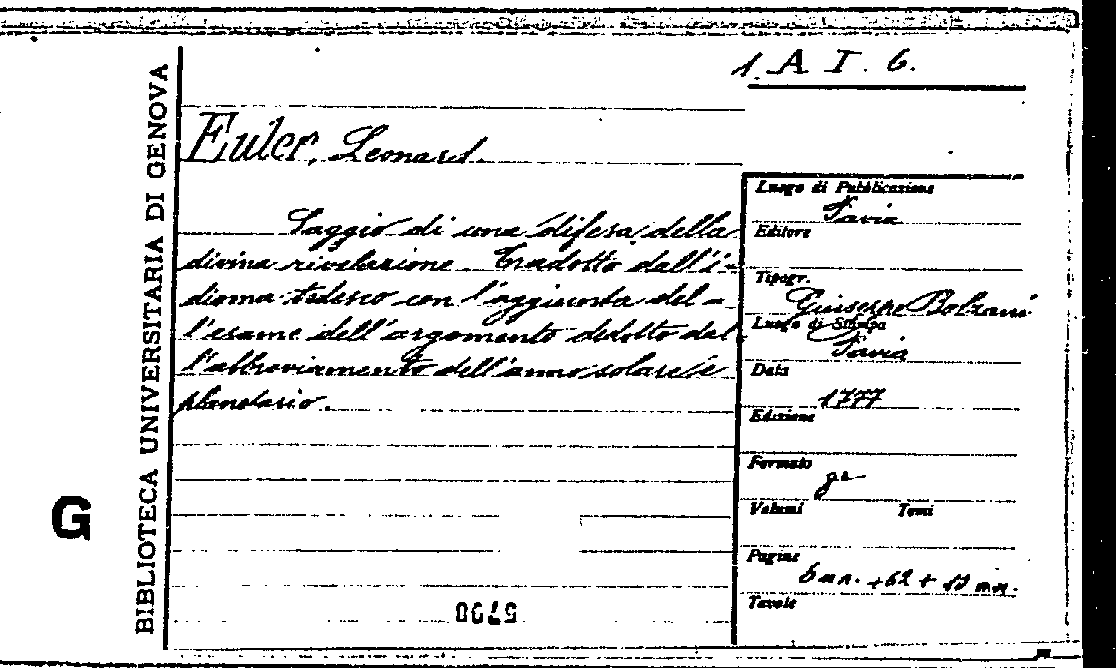 1. A I. 6.
BIBLIOTECA UNIVERSITARIA DI GENOVA
G
Euler, Leonard.
Saggio di una difesa della
divina rivelazione. Tradotto dall'i-
dioma tedesco con l'aggiunta del-
l'esame dell'argomento dedotto dal
l'abbreviamento dell'anno solare e
planetario.
Luogo di Pubblicazione
Pavia
Editore
Tipogr.
Giuseppe Bolzani
Luogo di Stampa
Pavia
Data
1777
Edizione
Formato
Volumi Tomi
Pagine
+62+
Tavole